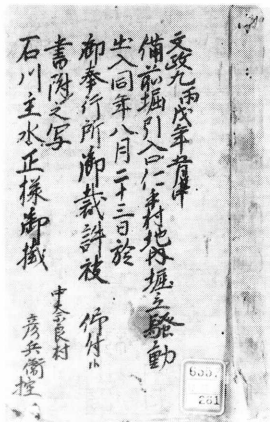 文政九丙戌年五月中
備前堀引入口仁手村地内堀立騒動
出入同年八月二十三日於
御奉行所御裁許被 仰付候
書附之写
石川主水正様御掛
中奈良村
彦兵衛控
261